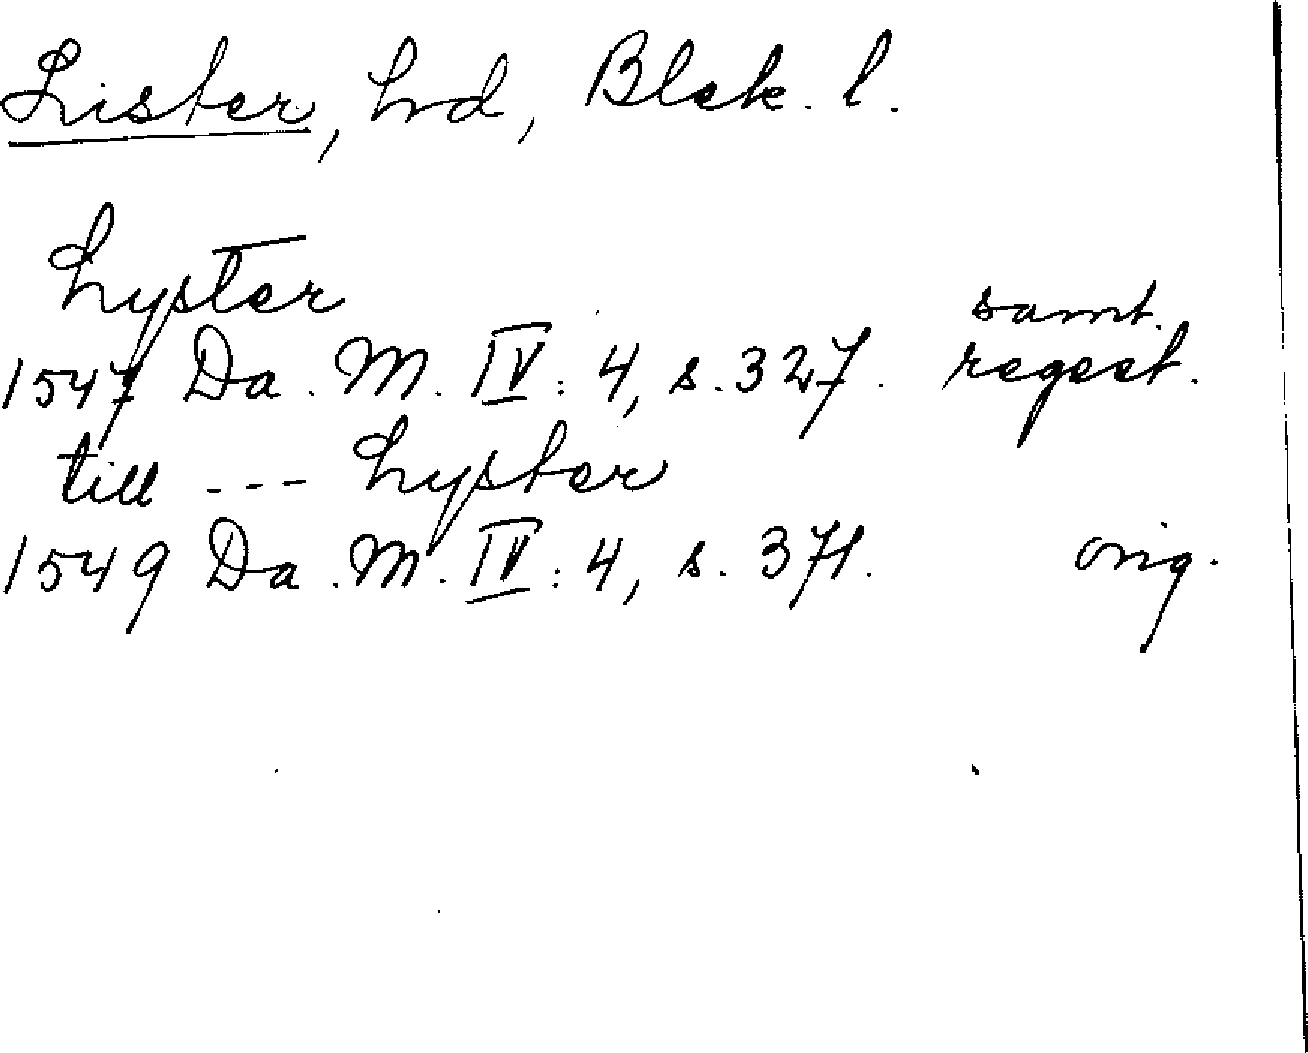 Lister, hrd, Blek. l.
Lyster
samt.
1547 Da. M. IV: 4, s. 327. regest.
till --- Lyster
1549 Da. M. IV: 4, s. 371. orig.